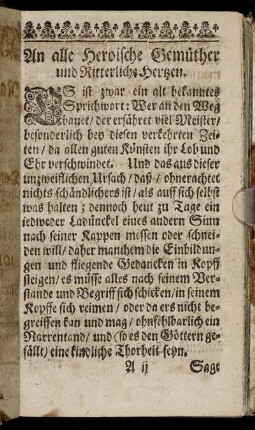 An alle Heroische Gemüther
und Ritterliche Hertzen.
ES ist zwar ein alt bekanntes
Sprichwort: Wer an den Weg
bauet / der erfähret viel Meister /
besonderlich bey diesen verkehrten Zei-
ten / da allen guten Künsten ihr Lob und
Ehr verschwindet. Und das aus dieser
unzweiflichen Ursach / daß / ohnerachtet
nichts schändlichers ist / als auff sich selbst
was halten ; dennoch heut zu Tage ein
iedweder Ladünckel eines andern Sinn
nach seiner Kappen messen oder schnei-
den will / daher manchem die Einbildun-
gen und fliegende Gedancken in Kopff
steigen / es müsse alles nach seinem Ver-
stande und Begriff sich schicken / in seinem
Kopffe sich reimen / oder da ers nicht be-
greiffen kan und mag / ohnfehlbarlich ein
Narrentand / und (so es den Göttern ge-
fällt) eine kindliche Thorheit seyn.
A ij Sagt